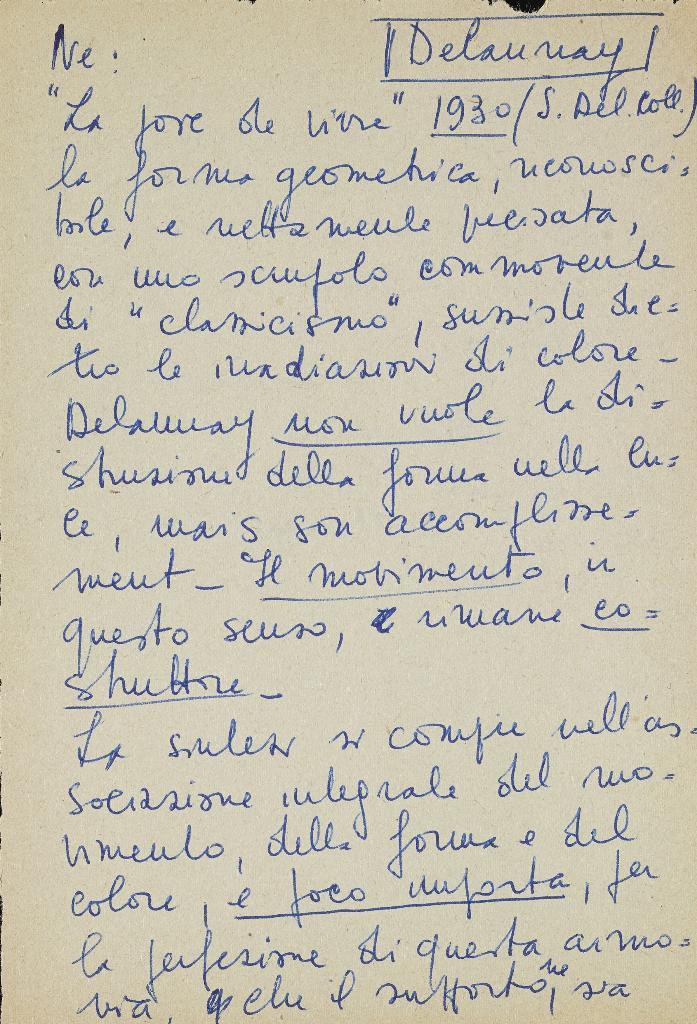 |Delaunay|
Ne:
"La joie de vivre" 1930 (S. Del. Coll.)
la forma geometrica, riconosci=
bile, e nettamente precisata,
con uno scrupolo commovente
di "classicismo", sussiste die=
tro le irradiazioni di colore –
Delaunay non vuole la di=
struzione della forma nella lu=
ce, mais son accomplisse=
ment – Il movimento, in
questo senso, è rimane co=
struttore –
La sintesi si compie nell'as=
sociazione integrale del mo=
vimento, della forma e del
colore, e poco importa, per
la perfezione di questa armo=
nia, che il supporto ne sia